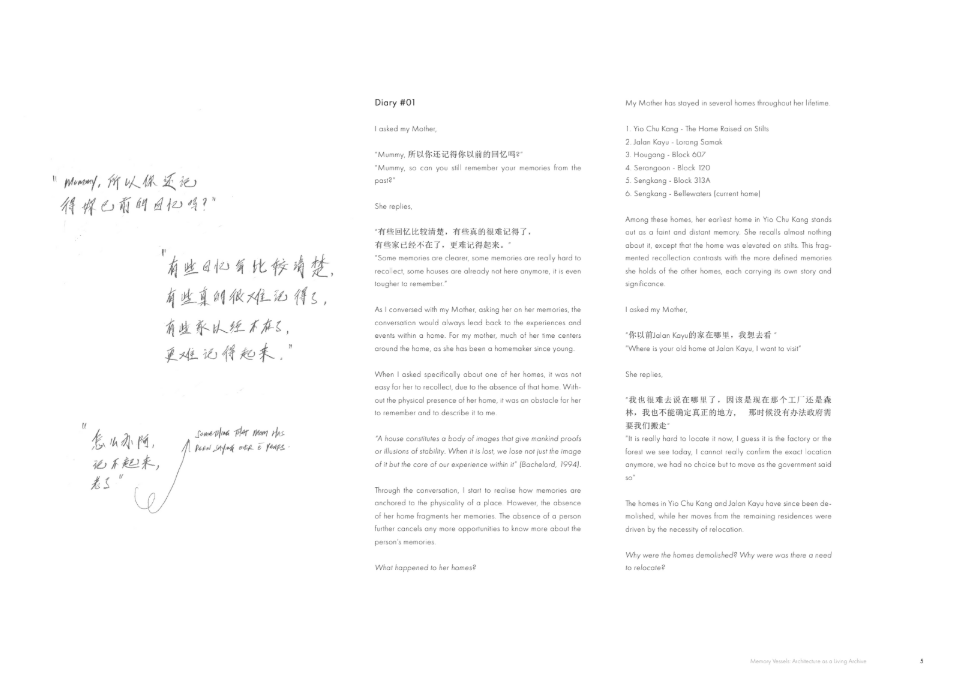 "Mummy, 所以你还记
得你已前的回忆吗?"
"有些回忆有比较清楚,
有些真的很难记得了,
有些家以经不在了,
更难记得起来."
"怎么办阿,
记不起来,
老了"
Something that mom has
been saying over
Diary #01
I asked my Mother,
"Mummy, 所以你还记得你以前的回忆吗?"
"Mummy, so can you still remember your memories from the
past?"
She replies,
"有些回忆比较清楚，有些真的很难记得了，
有些家已经不在了，更难记得起来。"
"Some memories are clearer, some memories are really hard to
recollect, some houses are already not here anymore, it is even
tougher to remember."
As I conversed with my Mother, asking her on her memories, the
conversation would always lead back to the experiences and
events within a home. For my mother, much of her time centers
around the home, as she has been a homemaker since young.
When I asked specifically about one of her homes, it was not
easy for her to recollect, due to the absence of that home. With-
out the physical presence of her home, it was an obstacle for her
to remember and to describe it to me.
"A house constitutes a body of images that give mankind proofs
or illusions of stability. When it is lost, we lose not just the image
of it but the core of our experience within it" (Bachelard, 1994).
Through the conversation, I start to realise how memories are
anchored to the physicality of a place. However, the absence
of her home fragments her memories. The absence of a person
further cancels any more opportunities to know more about the
person's memories.
What happened to her homes?
My Mother has stayed in several homes throughout her lifetime.
1. Yio Chu Kang - The Home Raised on Stilts
2. Jalan Kayu - Lorong Samak
3. Hougang - Block 607
4. Serangoon - Block 120
5. Sengkang - Block 313A
6. Sengkang - Bellewaters (current home)
Among these homes, her earliest home in Yio Chu Kang stands
out as a faint and distant memory. She recalls almost nothing
about it, except that the home was elevated on stilts. This frag-
mented recollection contrasts with the more defined memories
she holds of the other homes, each carrying its own story and
significance.
I asked my Mother,
"你以前Jalan Kayu的家在哪里，我想去看 "
"Where is your old home at Jalan Kayu, I want to visit"
She replies,
"我也很难去说在哪里了，因该是现在那个工厂还是森
林，我也不能确定真正的地方， 那时候没有办法政府需
要我们搬走"
"It is really hard to locate it now, I guess it is the factory or the
forest we see today, I cannot really confirm the exact location
anymore, we had no choice but to move as the government said
so"
The homes in Yio Chu Kang and Jalan Kayu have since been de-
molished, while her moves from the remaining residences were
driven by the necessity of relocation.
Why were the homes demolished? Why were was there a need
to relocate?
Memory Vessels: Architecture as a Living Archive
5